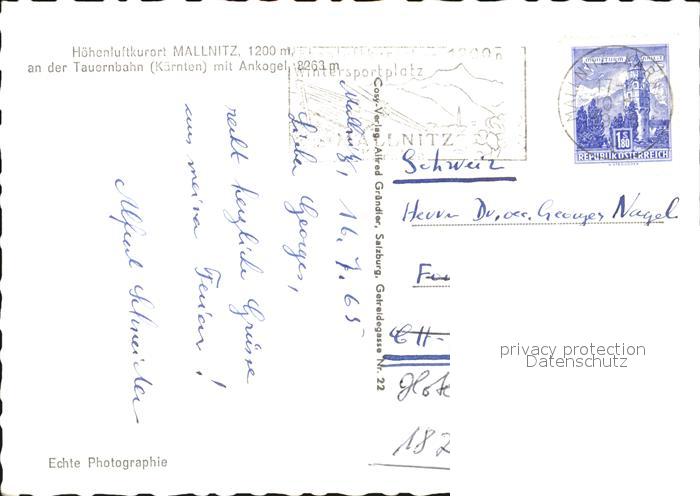 Höhenluftkurort MALLNITZ, 1200 m,
an der Tauernbahn (Kärnten) mit Ankogel, 3263 m
1200 m
Wintersportplatz
MALLNITZ
1 S 1.80
REPUBLIK ÖSTERREICH
Cosy-Verlag Alfred Gründler, Salzburg, Getreidegasse Nr. 22
Mallnitz, 16.7.65
Lieber Georges,
recht herzliche Grüsse
aus meinen Ferien!
Alfred Schneider
Schweiz
Herrn Dr. oec. Georges Nagel
CH-
Hote
182
privacy protection
Datenschutz
Echte Photographie